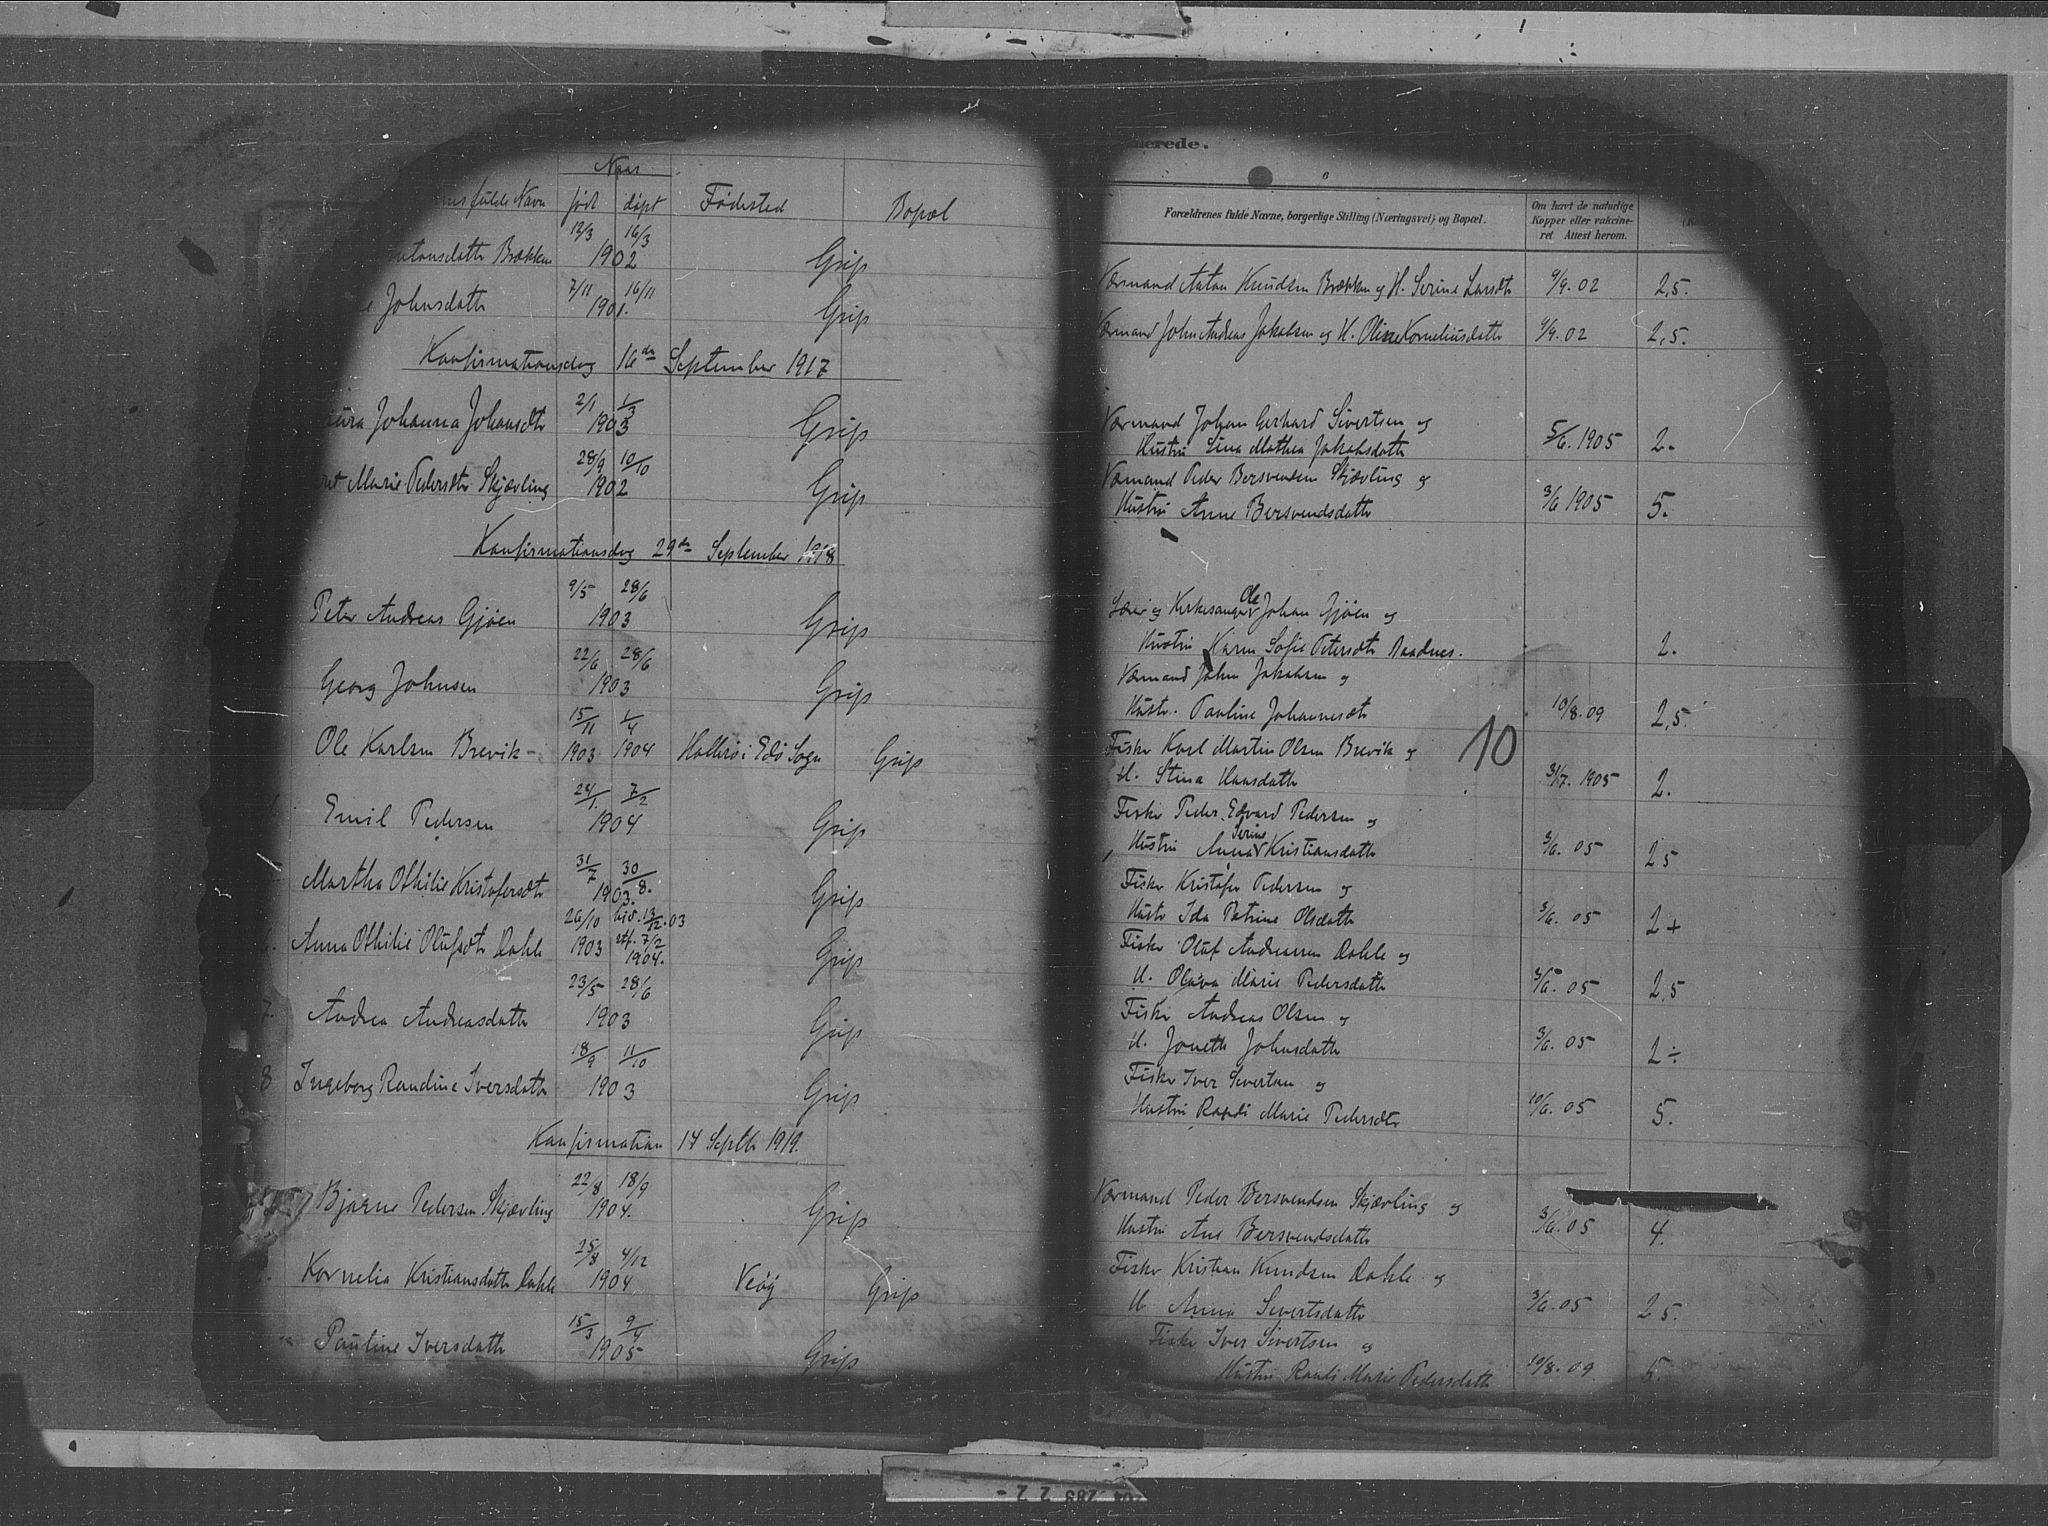 Naar
fulde Navn født døpt Fødested Bopæl
12/3 16/3
Antonsdatter Brækken 1902 Grip
7/11 16/11
Johnsdatter 1901. Grip
Konfirmationsdag 16de September 1917
2/1 1/3
Johanna Johansdtr 1903 Grip
28/9 10/10
Marie Pedersdtr Skjævling 1902 Grip
Konfirmationsdag 29de September 1918
9/5 28/6
Peter Andreas Gjøen 1903 Grip
22/6 28/6
Georg Johnsen 1903 Grip
15/11 1/4
Ole Karlsen Brevik - 1903 1904 i Edø Sogn Grip
24/1 7/2
Emil Pedersen 1904 Grip
31/7 30/8.
Martha Othilie Kristofersdtr 1903. Grip
26/10 hjd. 13/12.03
Anna Othilie Olufsdtr Dahle 1903 stf. 7/2 1904. Grip
23/5 28/6
7. Andrea Andreasdatter 1903 Grip
18/9 11/10
8 Ingeborg Randine Iversdatter 1903 Grip
Konfirmation 14 Septbr 1919.
22/8 18/9
Bjarne Pedersen Skjævling 1904. Grip
25/8 4/12
Kornelia Kristiansdatter Dahle 1904 Veøy Grip
15/3 9/4
Pauline Iversdatter 1905 Grip
erede.
6
Forældrenes fulde Navne, borgerlige Stilling (Næringsvei) og Bopæl.
Om havt de naturlige
Kopper eller vakcine-
ret. Attest herom.
Værmand Anton Knudsen Brækken og H. Serine Larsdtr 9/9.02 2,5.
Værmand John Andreas Jakobsen og H. Oline Korneliusdatter 9/9.02 2,5.
Værmand Johan Gerhard Sivertsen og
Hustru Lina Mathea Jakobsdatter 5/6.1905 2.
Værmand Peder Bersvendsen Skjævling og
Hustru Anne Bersvendsdatter 3/6 1905 5.
Lærer og Kirkesanger Ole Johan Gjøen og
Hustru Karen Sofie Petersdtr Aandnes. 2.
Værmand John Jakobsen og
Hustr. Pauline Johannesdtr 10/8.09 2,5.
10
Fisker Karl Martin Olsen Brevik og
H. Stina Hansdatter 31/7.1905 2.
Fisker Peder Edvard Pedersen og
Hustru Anna Serine Kristiansdatter 3/6.05 2 5
Fisker Kristofer Pedersen og
Hustr Ida Petrine Olsdatter 3/6.05 2+
Fisker Oluf Andreassen Dahle og
H. Olava Marie Pedersdatter 3/6.05 2,5
Fisker Andreas Olsen og
H. Jonette Johnsdatter 3/6.05 2÷
Fisker Iver Sivertsen og
Hustru Randi Marie Pedersdtr 10/6.05 5.
Værmand Peder Bersvendsen Skjævling og
Hustru Ane Bersvendsdatter 3/6.05 4.
Fisker Kristian Knudsen Dahle og
H. Anna Sivertsdatter 3/6.05 2 5.
Fisker Iver Sivertsen og
Hustru Randi Marie Pedersdatter 10/8.09 5.